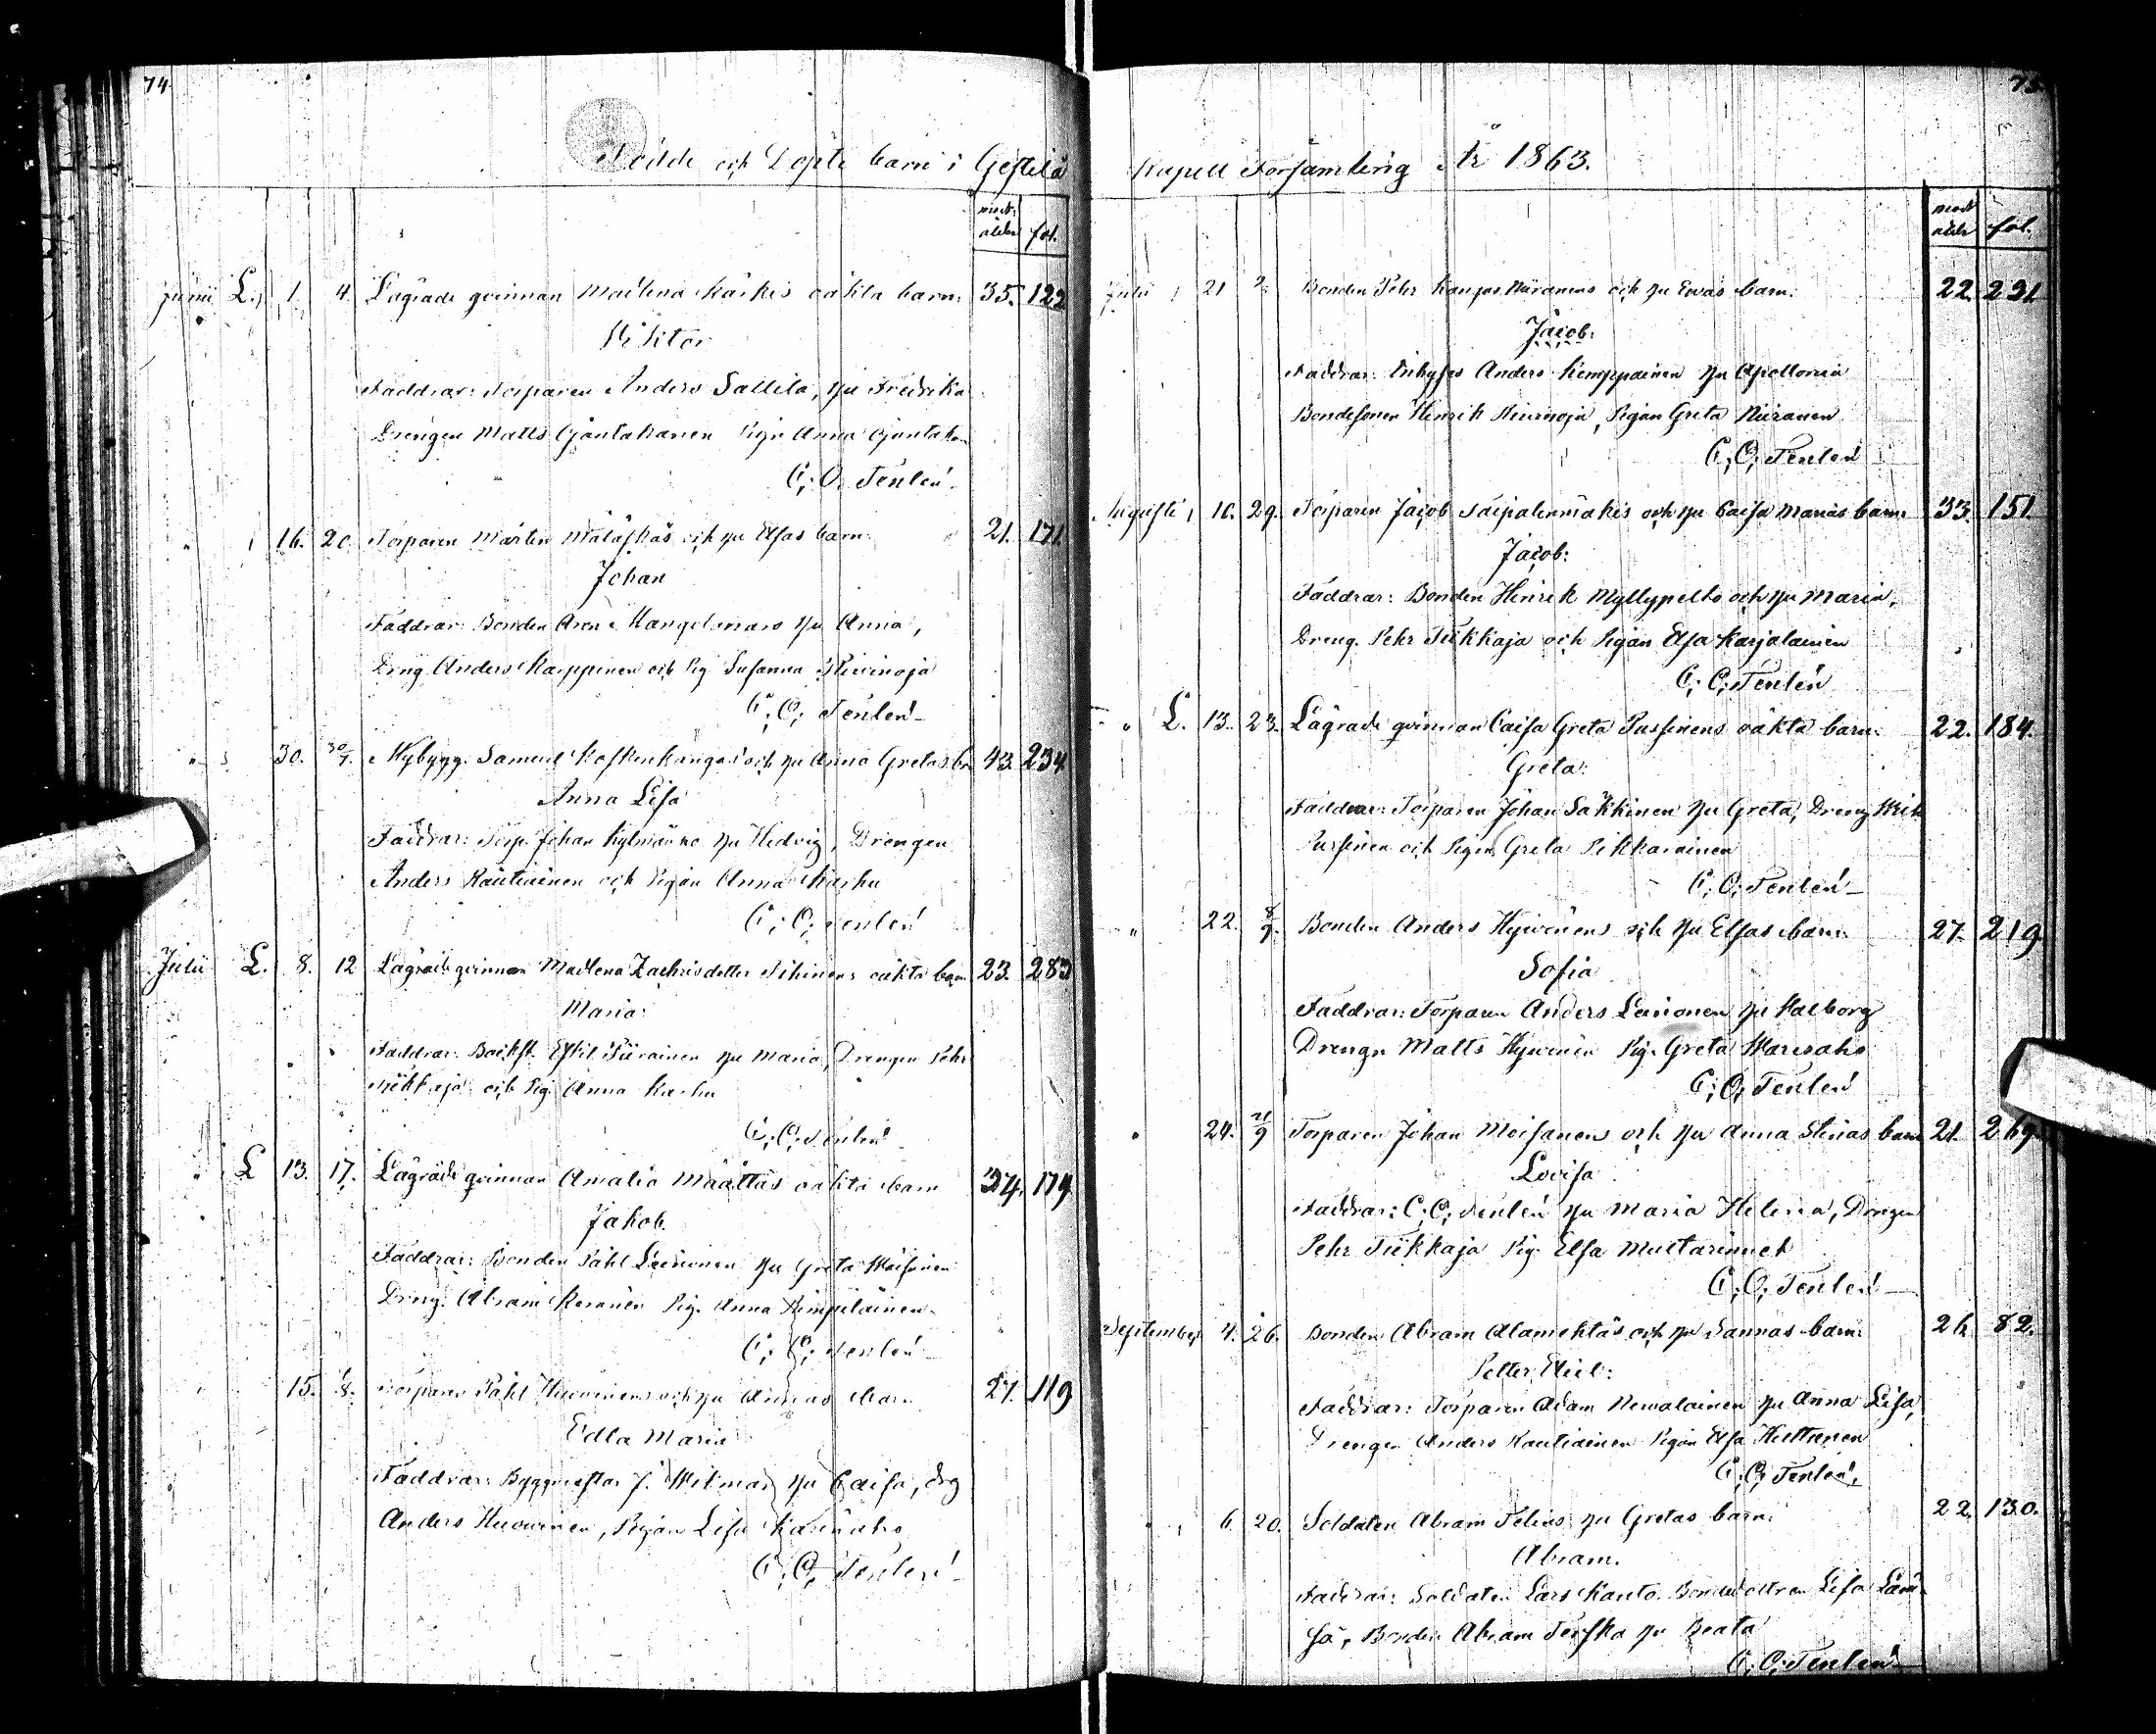 74
Födde och Döpte barn i
mod. ålder fol.
Junii L. 1. 4. Lägrade qvinnan Madlena Karhus oäkta barn: 35. 122
Viktor
Faddrar: Torparen Anders Sallila, hu Fredrika
Drengen Matts Pig. Anna
C. O. Tenlén
16. 20. Torparen Mårten Mäläskäs och hu Elsas barn: 21. 171.
Johan
Faddrar: Bonden Aron hu Anna,
Dreng Anders Karppinen och Pig. Susanna
C. O. Tenlén
30. 30/7. Nybygg. Samuel och hu Anna Gretas br. 43. 234.
Anna Lisa
Faddrar: Torp. Johan Kylmänne hu Hedvig, Drengen
Anders Rautiainen och Pigan Anna Karhu
C. O. Tenlén
Julii L. 8. 12 Lägrade qvinnan Madlena Zachrisdotter oäkta barn 23. 283
Maria:
Faddrar: Piirainen hu Maria, Drengen Pehr
Tiikkaja och Pig. Anna Karhu
C. O. Tenlén
L 13. 17. Lägrade qvinnan Amalia Määttäs oäkta barn 34. 179
Jakob.
Faddrar: Bonden Påhl Leinonen hu Greta Moisanen
Dreng. Abram Keränen Pig. Anna Kimpiläinen
C. O. Tenlén
15. Torparen Påhl Huovinens och hu Annas barn 27. 119
Edla Maria
Faddrar: Byggmästar J. Wikman hu Caisa, drg
Anders Huovinen, Pigan Lisa
C. O. Tenlén
75.
Kapell Församling År 1863.
mod ålder fol.
Julii 21 Bonden Pehr Kangas Niiranens och hu Evas barn: 22. 231
Jacob:
Faddrar: Inhyses Anders Kemppainen hu Apollonia
Bondesonen Henrik, Pigan Greta Niiranen
C. O. Tenlén
Augusti 10. 29. Torparen Jacob Taipalenmäkis och hu Caisa Marias barn: 33. 151
Jacob:
Faddrar: Bonden Henrik Myllypelto och hu Maria,
Dreng. Pehr Tiikkaja och Pigan Elsa Karjalainen
C. O. Tenlén
" L. 13. 23. Lägrade qvinnan Caisa Greta Pursinens oäkta barn: 22. 184.
Greta:
Faddrar: Torparen Johan Säkkinen hu Greta, Dreng Erik
Pursinen och Pigan Greta Pikkarainen
C. O. Tenlén
" 22. 8/9. Bonden Anders Hyvönens och hu Elsas barn: 27. 219
Sofia
Faddrar: Torparen Anders Leinonen hu Valborg
Drengen Matts Hyvönen Pig. Greta
C. O. Tenlén
24. 21/9 Torparen Johan Moisanens och hu Anna Stinas barn 21. 269.
Lovisa
Faddrar: C. O. Tenlén hu Maria Helena, Drengen
Pehr Tiikkaja Pig. Elsa Mustarinnet
C. O. Tenlén
September 4. 26. Bonden Abram Alamehtäs och hu Sannas barn: 26 82.
Petter Eliel:
Faddrar: Torparen Adam Nevalainen hu Anna Lisa,
Drengen Anders Rautiainen Pigan Elsa Huttunen
C. O. Tenlén
6. 20. Soldaten Abram Felius hu Gretas barn: 22. 130.
Abram.
Faddrar: Soldaten Lars Kauto. Bondedottren Lisa
Bonden Abram hu Beata
C. O. Tenlén